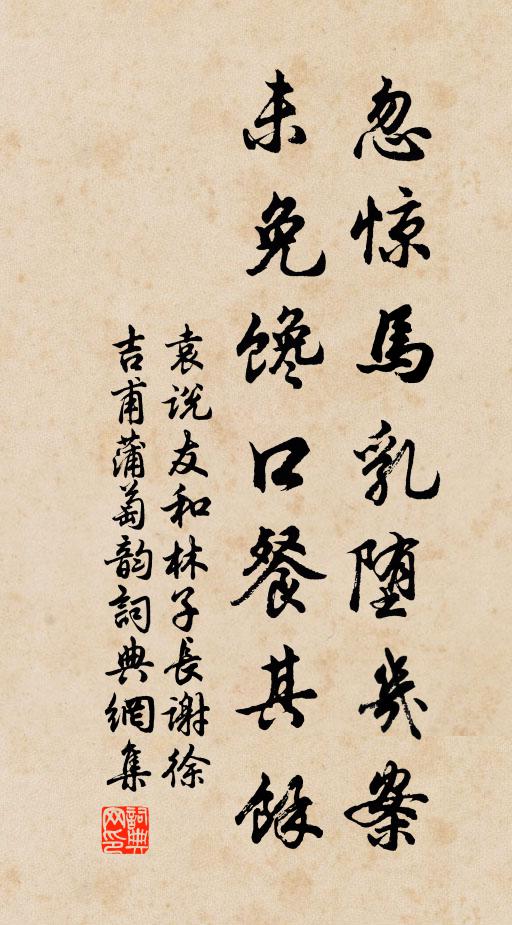 忽惊馬乳堕几案
未免馋口餐其餘
袁说友和林子長謝徐
吉甫蒲萄韵詞典網集
詞典网印